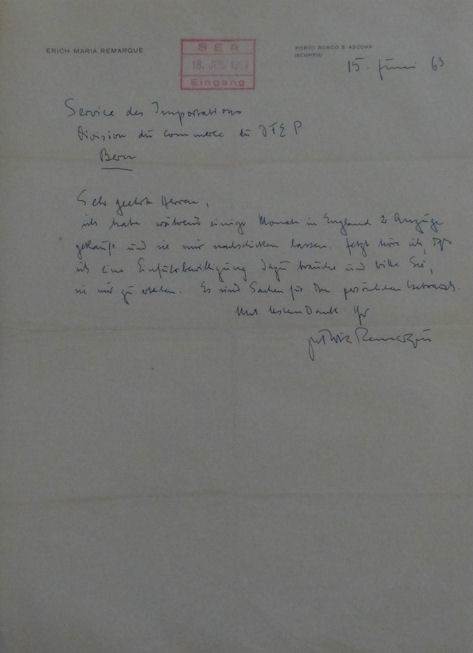 ERICH MARIA REMARQUE
SEA
18. JUNI 1963
Eingang
PORTO RONCO S ASCONA
(SCHWEIZ)
15. Juni 63
Service des Importations
Division du Commerce du DFEP
Bern
Sehr geehrte Herren,
ich habe während einiger Monate in England 2 Anzüge
gekauft und sie mir nachschicken lassen. Jetzt höre ich, dass
ich eine Einfuhrbewilligung dazu brauche und bitte Sie,
sie mir zu erteilen. Es sind Sachen für den persönlichen Gebrauch.
Mit bestem Dank Ihr
Remarque